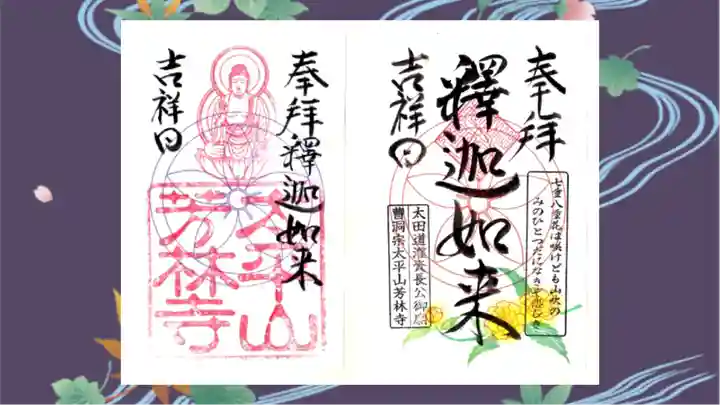 奉拝
七重八重花は咲けども山吹の
みのひとつだになきぞ悲しき
釋迦如来
吉祥日
太田道灌資長公御廟
曹洞宗太平山芳林寺
奉拝釋迦如来
吉祥日
太平山
芳林寺